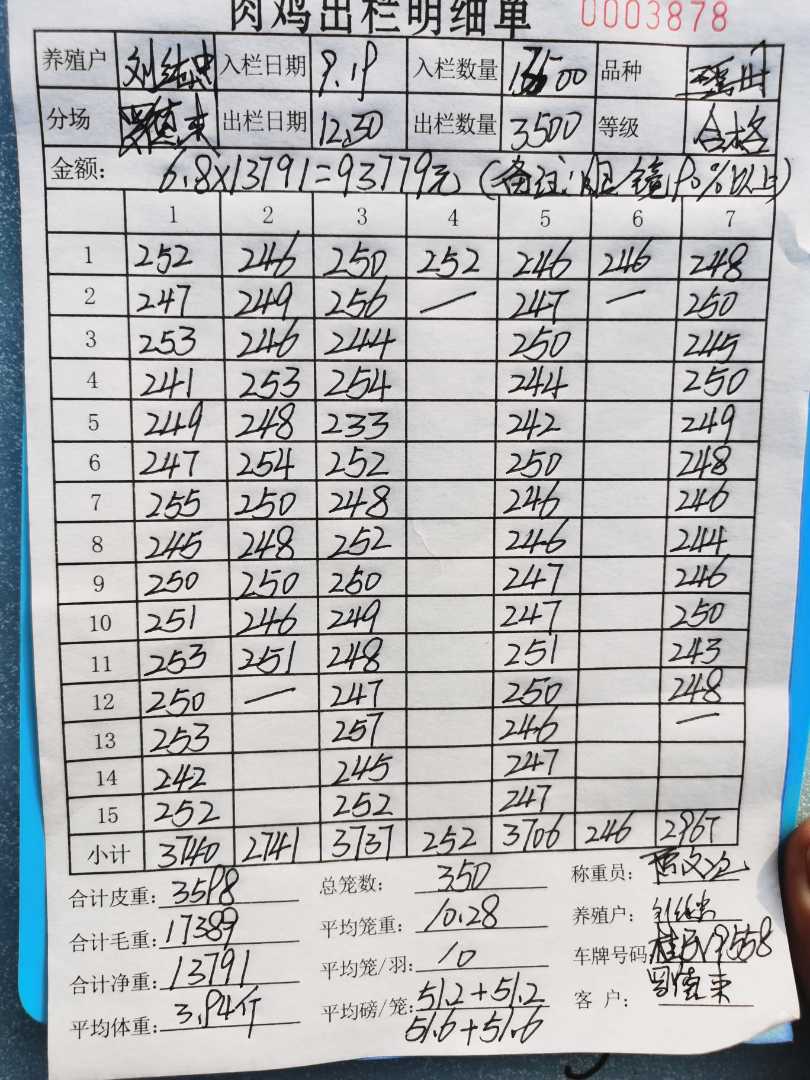 肉鸡出栏明细单 0003878
养殖户 入栏日期 9.19 入栏数量 品种
分场 出栏日期 12.30 出栏数量 3500 等级 合格
金额: 6.8×13791=93779元(备注: 眼镜90%以上)
1 2 3 4 5 6 7
1 252 246 250 252 246 246 248
2 247 249 256 — 247 — 250
3 253 246 244 250 245
4 241 253 254 244 250
5 249 248 233 242 249
6 247 254 252 250 248
7 255 250 248 246 246
8 245 248 252 246 244
9 250 250 250 247 246
10 251 246 249 247 250
11 253 251 248 251 243
12 250 — 247 250 248
13 253 257 246 —
14 242 245 247
15 252 252 247
小计 3740 2741 3737 252 3706 246 2967
合计皮重: 3598 总笼数: 350 称重员:
合计毛重: 17389 平均笼重: 10.28 养殖户:
合计净重: 13791 平均笼/羽: 10 车牌号码:
平均体重: 3.94斤 平均磅/笼: 51.2+51.2 客户:
51.6+51.6